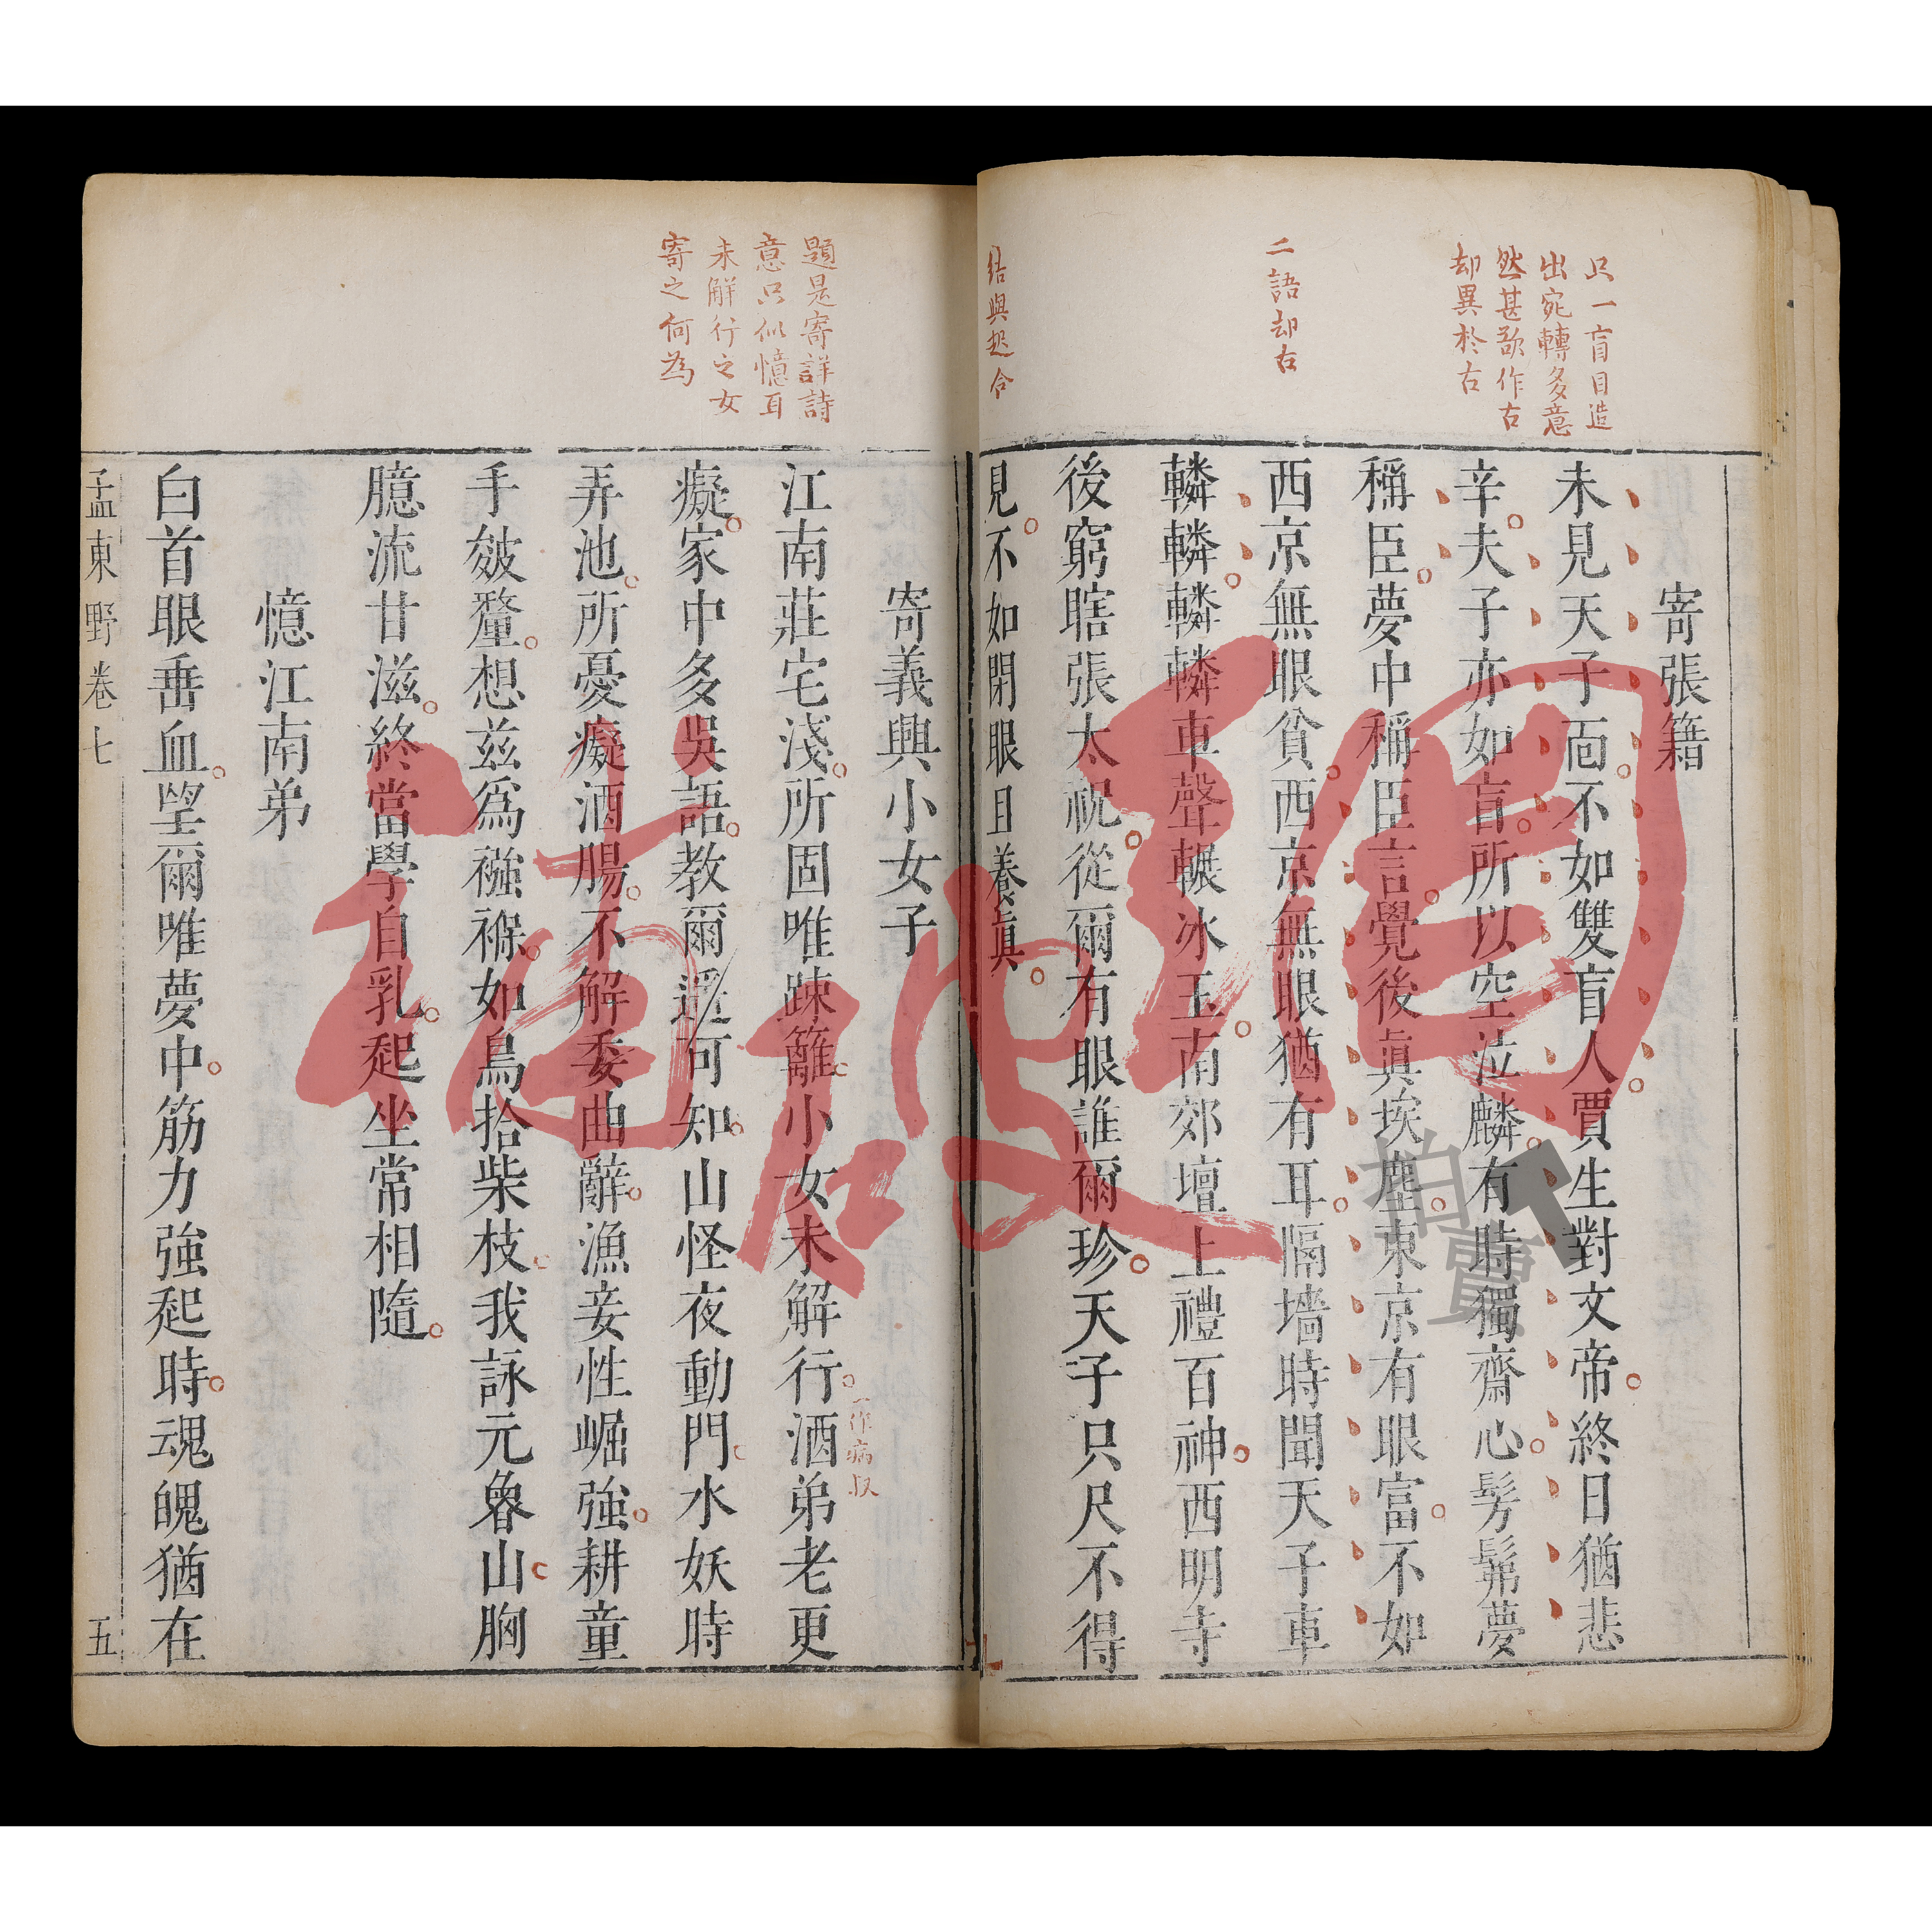 只一盲目造
出宛轉多意
然甚欲作古
却異於古
二語却古
結與起合
寄張籍
未見天子面不如雙盲人賈生對文帝終日猶悲
辛夫子亦如盲所以空泣麟有時獨齋心髣髴夢
稱臣夢中稱臣言覺後眞埃塵東京有眼富不如
西京無眼貧西京無眼猶有耳隔墻時聞天子車
轔轔轔轔車聲輾冰玉南郊壇上禮百神西明寺
後窮瞎張太祝從爾有眼誰爾珍天子只尺不得
見不如閉眼且養眞
題是寄詳詩
意只似憶耳
未解行之女
寄之何為
寄義興小女子
江南莊宅淺所固唯踈籬小女未解行酒弟老更
一作病叔
癡家中多吳語教爾遥可知山怪夜動門水妖時
弄池所憂癡酒腸不解委曲辭漁妾性崛強耕童
手皴釐想兹爲襁褓如鳥拾柴枝我詠元魯山胸
臆流甘滋終當學自乳起坐常相隨
憶江南弟
白首眼垂血望爾唯夢中筋力強起時魂魄猶在
孟東野卷七
五
拍賣